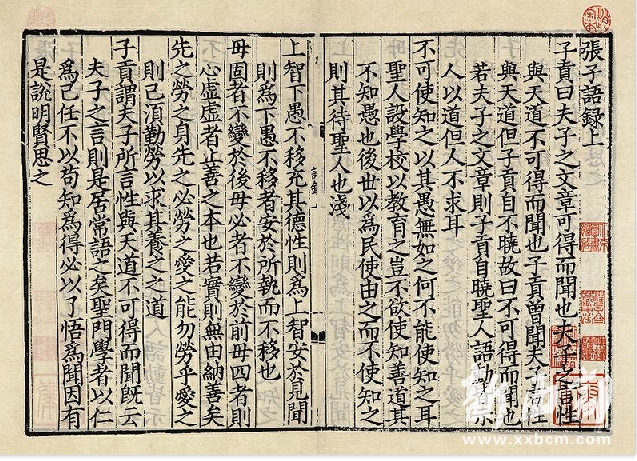 張子語錄上
子貢曰夫子之文章可得而聞也夫子之言性
與天道不可得而聞也子貢曾聞夫子言性
與天道但子貢自不曉故曰不可得而聞也
若夫子之文章則子貢自曉聖人語動皆示
人以道但人不求耳
不可使知之以其愚無如之何不能使知之耳
聖人設學校以教育之豈不欲使知善道其
不知愚也後世以爲民使由之而不使知之
則其待聖人也淺
上智下愚不移充其德性則爲上智安於見聞
則爲下愚不移者安於所執而不移也
毋固者不變於後毋必者不變於前毋四者則
心虛虛者止善之本也若實則無由納善矣
先之勞之身先之必勞之愛之能勿勞乎愛之
則己須勤勞以求其養之之道
子貢謂夫子所言性與天道不可得而聞旣云
夫子之言則是居常語之矣聖門學者以仁
爲己任不以苟知爲得必以了悟爲聞因有
是說明賢思之
www.xxbcm.com